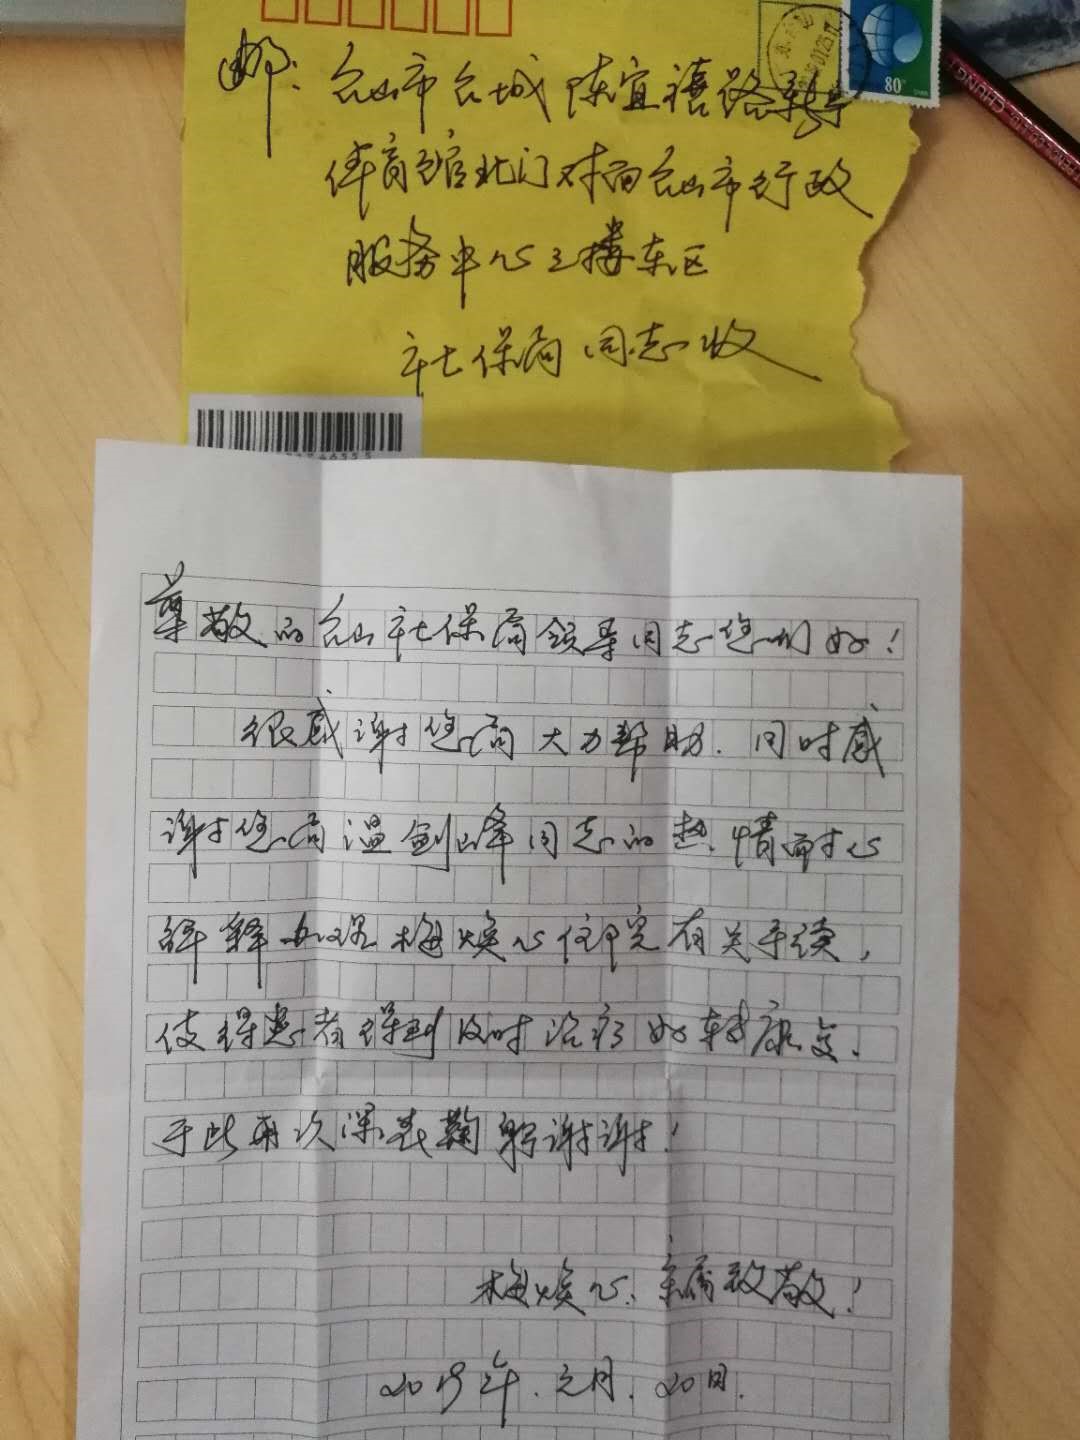 80
CHUNG
邮: 台山市台城陈宜禧路新宁
体育馆北门对面台山市行政
服务中心三楼东区
社保局同志收
尊敬的台山市社保局领导同志您们好!
很感谢您局大力帮助.同时感
谢您局温剑峰同志的热情耐心
解释办理梅焕心住院有关手续,
使得患者得到及时治疗好转康复.
于此再次深表鞠躬谢谢!
梅焕心.亲属致敬!
2019年.元月.20日.